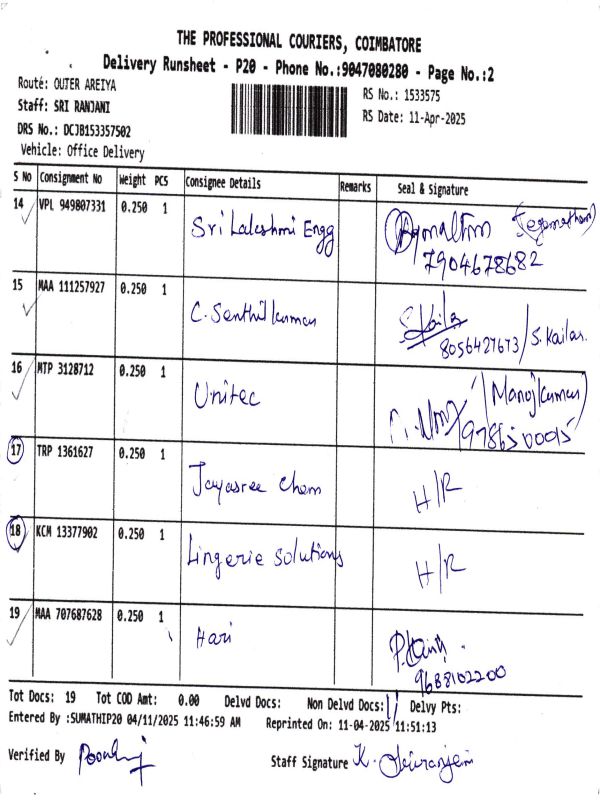 THE PROFESSIONAL COURIERS, COIMBATORE
Delivery Runsheet - P20 - Phone No.:9047080280 - Page No.:2
Route: OUTER AREIYA
RS No.: 1533575
Staff: SRI RANJANI
RS Date: 11-Apr-2025
DRS No.: DCJB153357502
Vehicle: Office Delivery
S No Consignment No Weight PCS Consignee Details Remarks Seal & Signature
14 VPL 949807331 0.250 1 Sri Lakshmi Engg
7904678682
15 MAA 111257927 0.250 1 C. Senthilkumar S. Kailas
8056427673/ S. Kailas.
16 MTP 3128712 0.250 1 Unitec (Manojkumar)
9786500015
17 TRP 1361627 0.250 1 Jayasree Chem H/R
18 KCM 13377902 0.250 1 Lingerie Solutions H/R
19 MAA 707687628 0.250 1 Hari
9688102200
Tot Docs: 19 Tot COD Amt: 0.00 Delvd Docs: Non Delvd Docs: Delvy Pts:
Entered By :SUMATHIP20 04/11/2025 11:46:59 AM Reprinted On: 11-04-2025 11:51:13
Verified By
Staff Signature K.